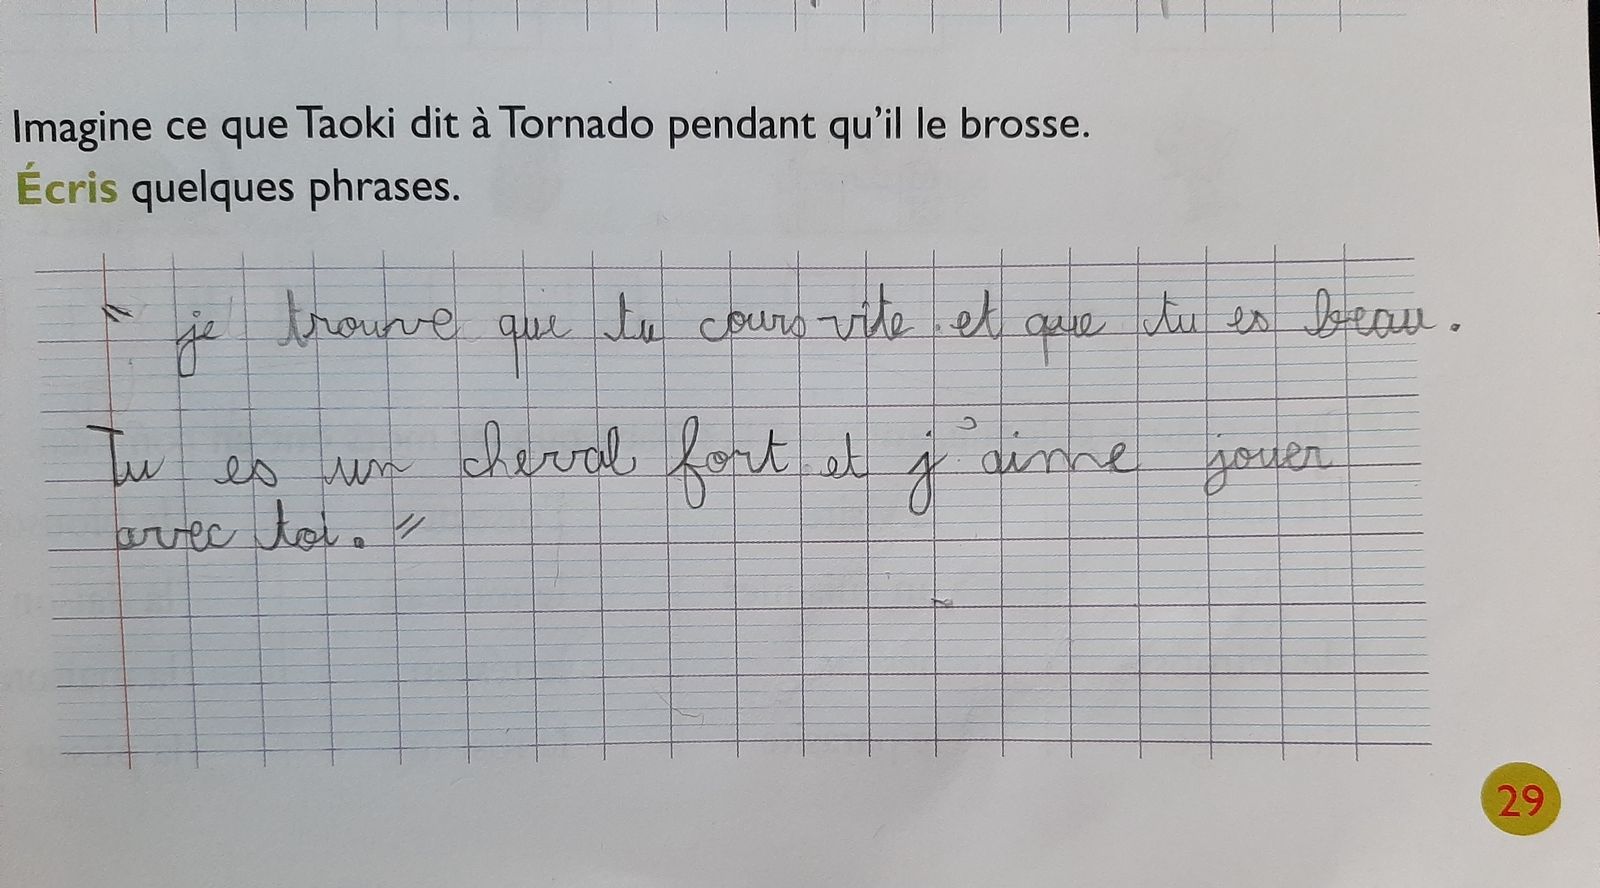 Imagine ce que Taoki dit à Tornado pendant qu'il le brosse.
Écris quelques phrases.
" je trouve que tu cours vite et que tu es beau.
Tu es un cheval fort et j'aime jouer
avec toi. "
29